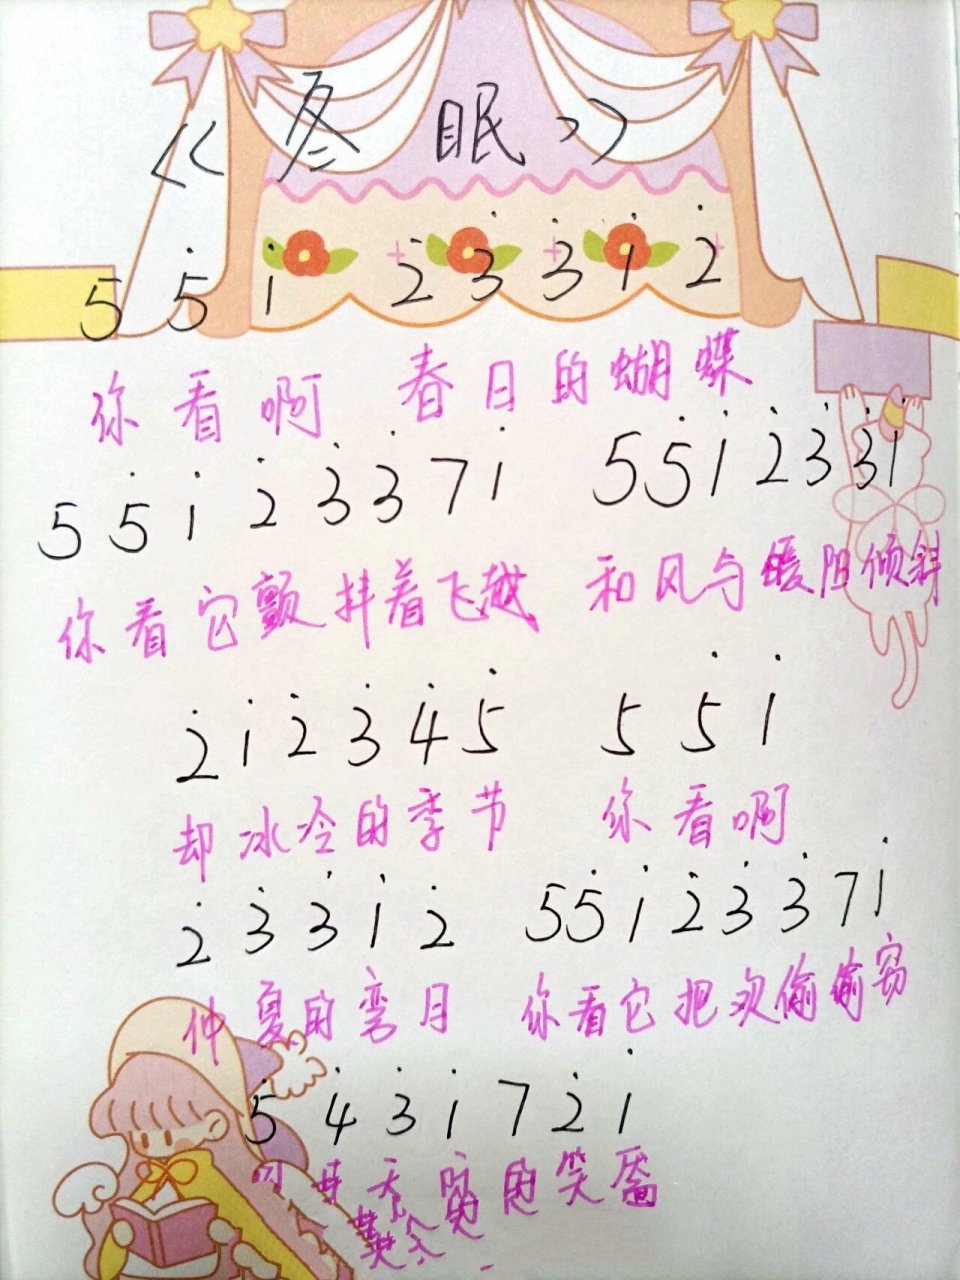 《冬眠》
5 5̇ 1̇ 2̇ 3̇ 3̇ 1̇ 2̇
你看啊 春日的蝴蝶
5 5̇ 1̇ 2̇ 3̇ 3̇ 7 1̇ 5 5̇ 1̇ 2̇ 3̇ 3̇ 1̇
你看它颤抖着飞越 和风与暖阳倾斜
2̇ 1̇ 2̇ 3̇ 4̇ 5̇ 5 5̇ 1̇
却冰冷的季节 你看啊
2̇ 3̇ 3̇ 1̇ 2̇ 5 5̇ 1̇ 2̇ 3̇ 3̇ 7 1̇
仲夏的弯月 你看它把欢偷偷窃
5̇ 4̇ 3̇ 1̇ 7 2̇ 1̇
天际的笑靥